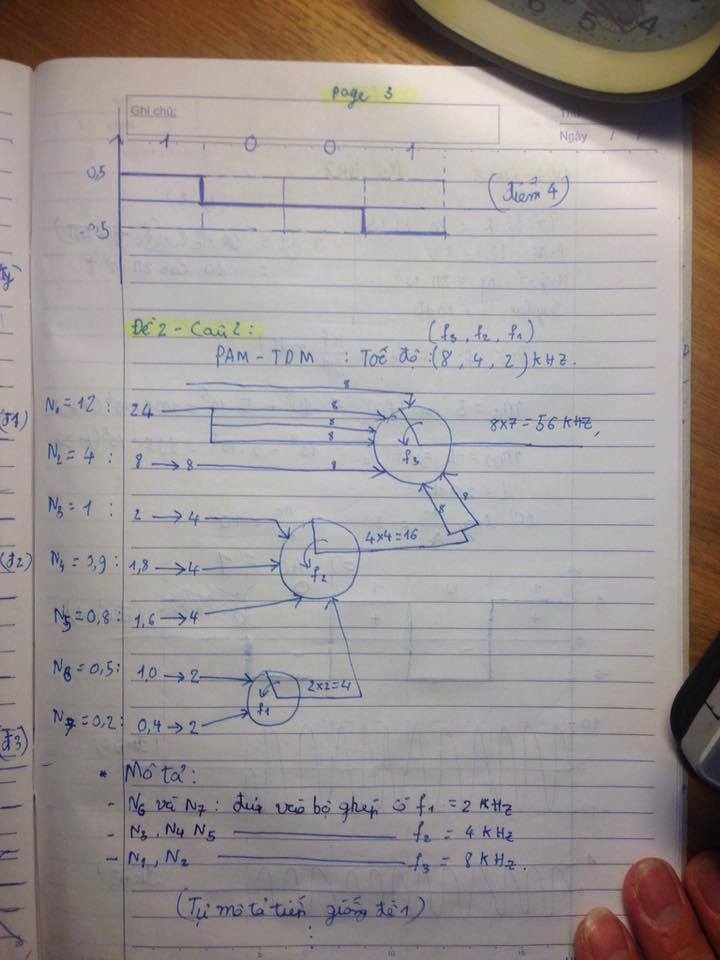 page 3
Ghi chú:
Ngày / /
1 1 0 0 1
0,5
-0,5
(điểm 4)
Đề 2 - Câu 2:
(f3, f2, f1)
PAM-TDM : Tốc độ: (8, 4, 2) kHz.
8
N1 = 12 : 24
8
8
8
8x7 = 56 kHz,
f3
N2 = 4 : 8 → 8
8
8
8
N3 = 1 : 2 → 4
4x4=16
f2
N4 = 0,9: 1,8 → 4
N5 = 0,8: 1,6 → 4
N6 = 0,5: 1,0 → 2
2x2=4
f1
N7 = 0,2: 0,4 → 2
* Mô tả:
- N6 và N7 : đưa vào bộ ghép có f1 = 2 kHz
- N3, N4 N5 ——— f2 = 4 kHz
- N1, N2 ——— f3 = 8 kHz.
(Tự mô tả tiếp giống đề 1)
(đ1)
(đ2)
(đ3)
5
10
15
6
5
4